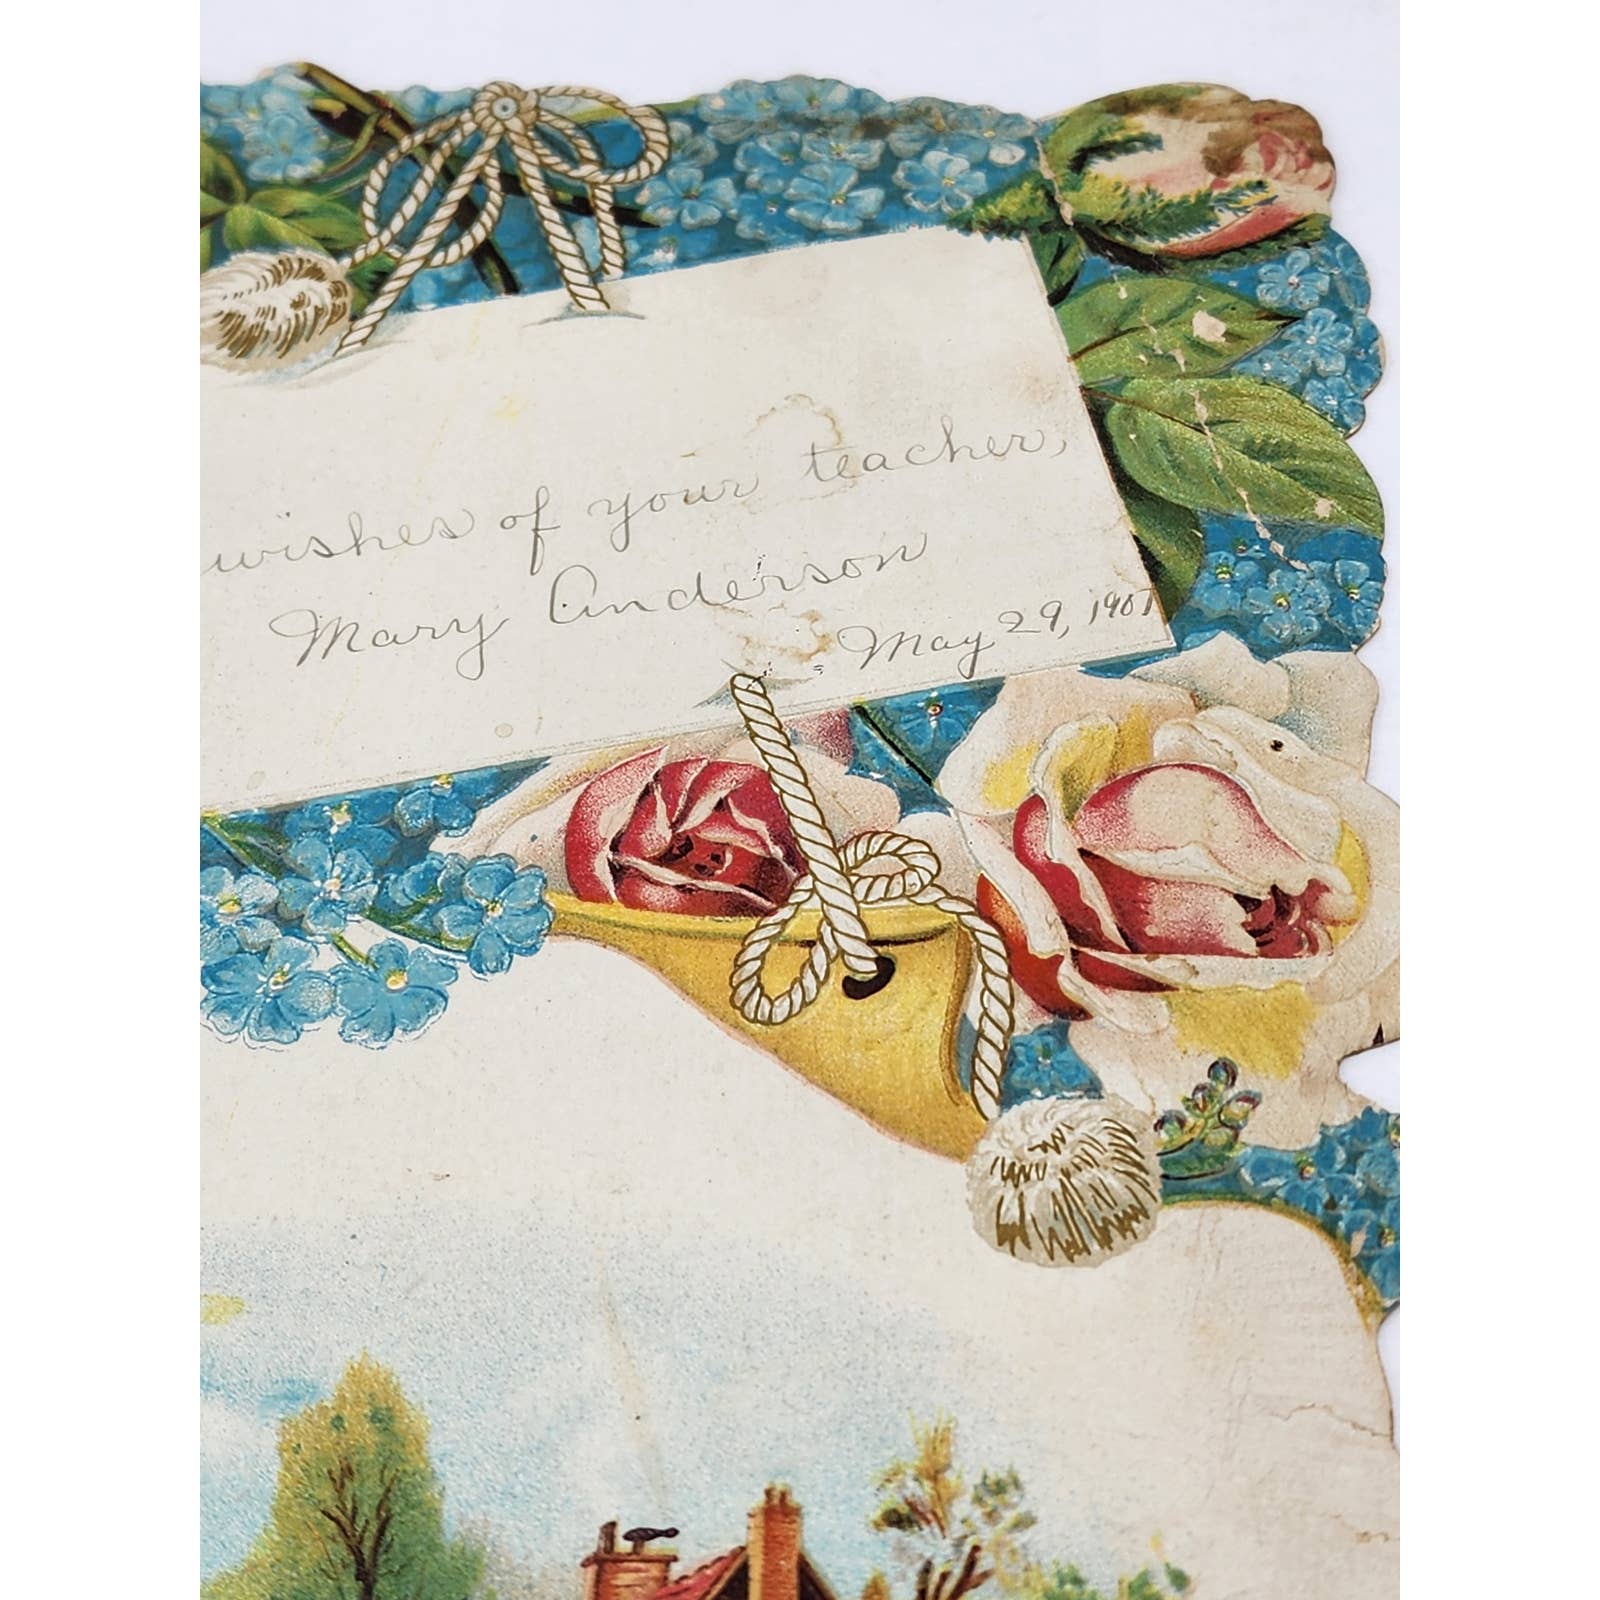 wishes of your teacher,
Mary Anderson
May 29, 1907